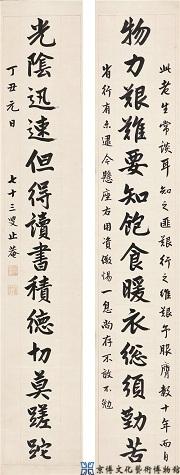 物力艱難要知飽食暖衣總須勤苦
此老生常談耳知之匪艱行之維艱予服膺數十年而自
省行有未逮今懸座右用資儆惕一息尚存不敢不勉
光陰迅速但得讀書積德切莫蹉跎
丁丑元日
七十三叟止菴
京博文化藝術博物館